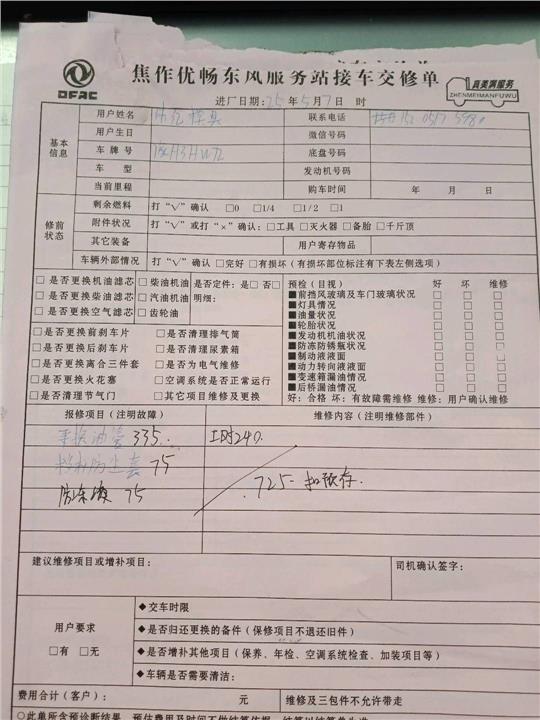 DFAC
焦作优畅东风服务站接车交修单
真美满服务
ZHENMEIMANFUWU
进厂日期：25年5月7日 时
基本信息
用户姓名 联系电话
用户生日 微信号码
车牌号 底盘号码
车型 发动机号码
当前里程 购车时间 年 月 日
修前状态
剩余燃料 打“√”确认 □0 □1/4 □1/2 □1
附件状况 打“√”或打“×”确认：□工具 □灭火器 □备胎 □千斤顶
其它装备 用户寄存物品
车辆外部情况 打“√”确认 □完好 □有损坏（有损坏部位标注有下表左侧选项）
□是否更换机油滤芯 □柴油机油 是否定件：□是 □否
□是否更换柴油滤芯 □汽油机油 明细：
□是否更换空气滤芯 □齿轮油
□是否更换前刹车片 □是否清理排气筒
□是否更换后刹车片 □是否清理尿素箱
□是否更换离合三件套 □是否为电气维修
□是否更换火花塞 □空调系统是否正常运行
□是否清理节气门 □其它项目维修及更换
预检（目视） 好 坏 维修
■前挡风玻璃及车门玻璃状况 □ □ □
■灯具情况 □ □ □
■油量状况 □ □ □
■轮胎状况 □ □ □
■发动机机油状况 □ □ □
■防冻防锈瓶状况 □ □ □
■制动液液面 □ □ □
■动力转向液液面 □ □ □
■变速箱漏油情况 □ □ □
■后桥漏油情况 □ □ □
好：合格 坏：有故障需维修 维修：用户确认维修
报修项目（注明故障） 维修内容（注明维修部件）
更换油管 335. 工时240.
防尘套 75
725- 扣预存.
防冻液 75
建议维修项目或增补项目： 司机确认签字：
用户要求
□有 □无
◆交车时限
◆是否归还更换的备件（保修项目不退还旧件）
◆是否增补其他项目（保养、年检、空调系统检查、加装项目等）
◆车辆是否需要清洁：
费用合计（客户）： 元 维修及三包件不允许带走
○此单所含预诊断结果、预估费用及时间不做结算依据